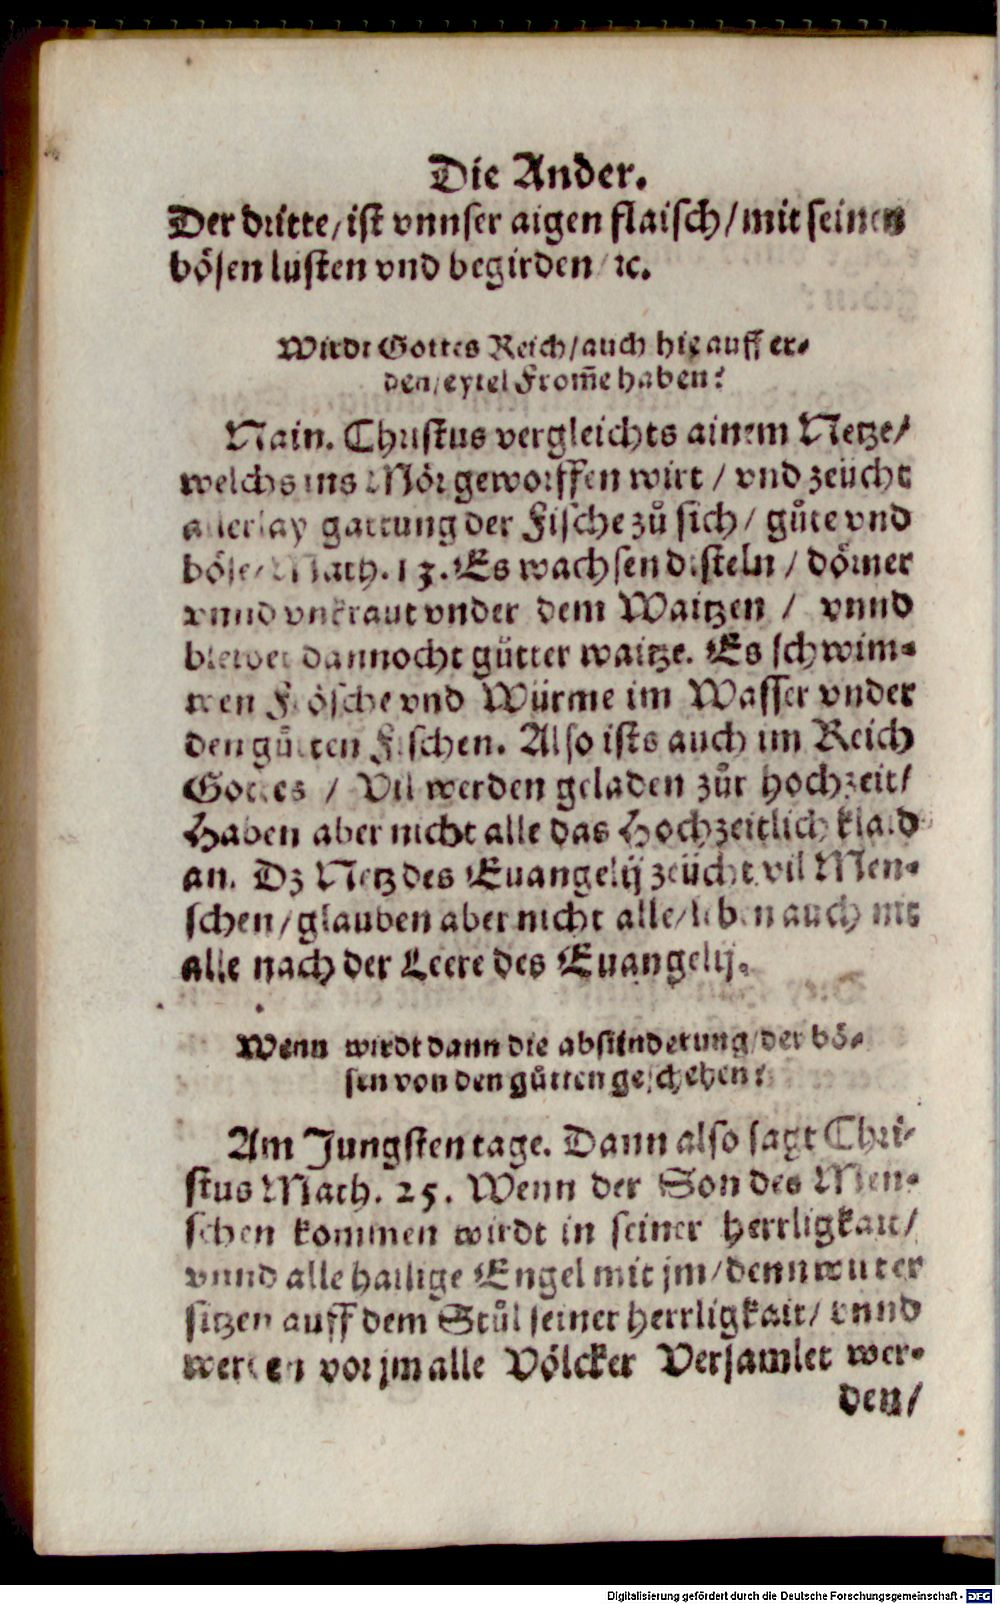 Die Ander.
Der dritte/ist vnnser aigen flaisch/mit seinen
bösen lusten vnd begirden/ ꝛc.
Wirdt Gottes Reich/auch hie auff er-
den/eytel From̃e haben?
Nain. Christus vergleichts ainem Netze/
welchs ins Mör geworffen wirt / vnd zeücht
allerlay gattung der Fische zů sich/ gůte vnd
böse/Math. 13. Es wachsen disteln / dörner
vnnd vnkraut vnder dem Waitzen / vnnd
bleibet dannocht gůtter waitze. Es schwim-
men Frösche vnd Würme im Wasser vnder
den gůtten Fischen. Also ists auch im Reich
Gottes / Vil werden geladen zůr hochzeit/
Haben aber nicht alle das Hochzeitlich klaid
an. Dz Netz des Euangelij zeücht vil Men-
schen/glauben aber nicht alle/leben auch nit
alle nach der Leere des Euangelij.
Wenn wirdt dann die absünderung/der bö-
sen von den gůtten geschehen?
Am Jungsten tage. Dann also sagt Chri-
stus Math. 25. Wenn der Son des Men-
schen kommen wirdt in seiner herrligkait/
vnnd alle hailige Engel mit jm/denn wirt er
sitzen auff dem Stůl seiner herrligkait/ vnnd
werden vor jm alle Völcker Versamlet wer-
den/
Digitalisierung gefördert durch die Deutsche Forschungsgemeinschaft - DFG